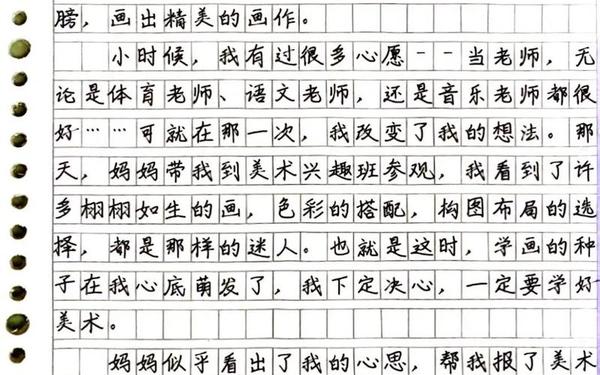 膀，画出精美的画作。
小时候，我有过很多心愿--当老师，无
论是体育老师、语文老师，还是音乐老师都很
好……可就在那一次，我改变了我的想法。那
天，妈妈带我到美术兴趣班参观，我看到了许
多栩栩如生的画，色彩的搭配，构图布局的选
择，都是那样的迷人。也就是这时，学画的种
子在我心底萌发了，我下定决心，一定要学好
美术。
妈妈似乎看出了我的心思，帮我报了美术